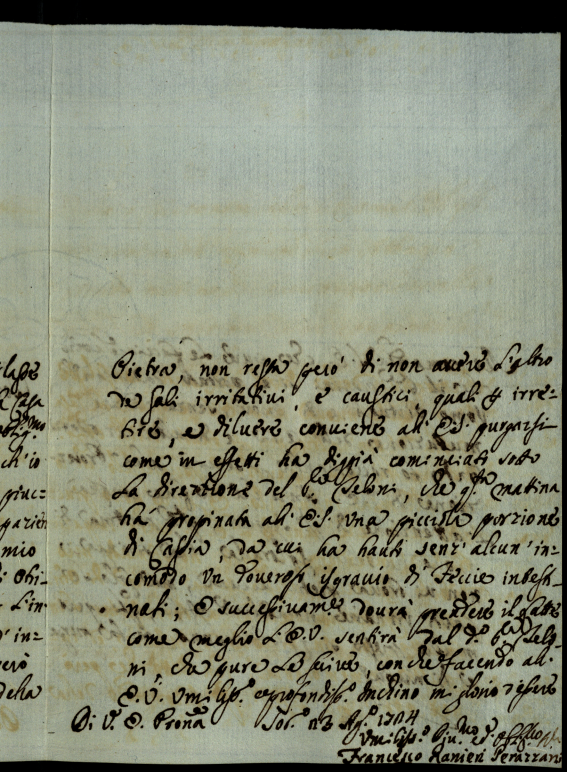 Pietra, non resta però di non avere l'altro
de sali irritativi, e caustici, quali
e diluere conviene all' E.S. purgarsi
come in effetti ha diggià cominciato sotto
La direzzione del Seloni, che matina
ha propinata all' E.S. una piccola porzione
di Cassia, da cui ha hauto senz' alcun' in-
comodo un doveroso isgravio di Feccie intesti-
nali; E successivam.e dourà prendere il latte
come meglio L'E.V. sentirà dal d.o Selo-
ni, che pure Le scrive, con che facendo all'
E.V. umiliss.o e profondiss.o Inchino mi glorio d'essere
Di V. E. Pron̄a 1704
Umiliss.o
Francesco Ranieri
ch'io
piuc=
mio
L'in
d' in=
però
della